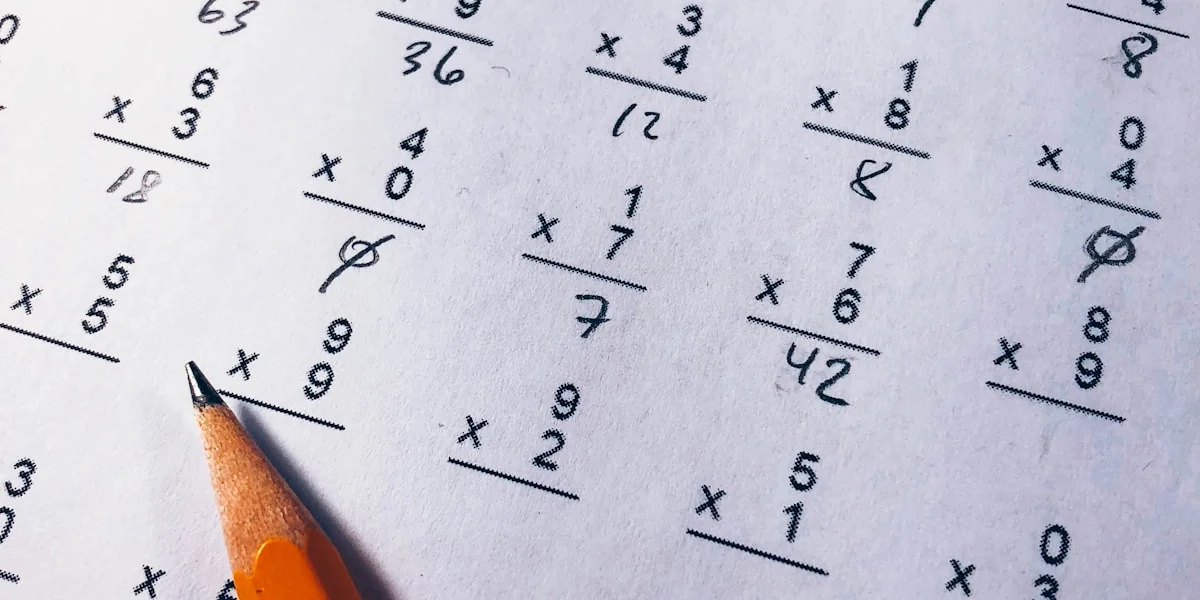 63
9
36
3
x 4
12
1
x 8
8
0
x 4
0
4
8
6
x 3
18
4
x 0
0
1
x 7
7
7
x 6
42
8
x 9
5
x 5
9
x 9
9
x 2
5
x 1
0
x 3
3
0
x